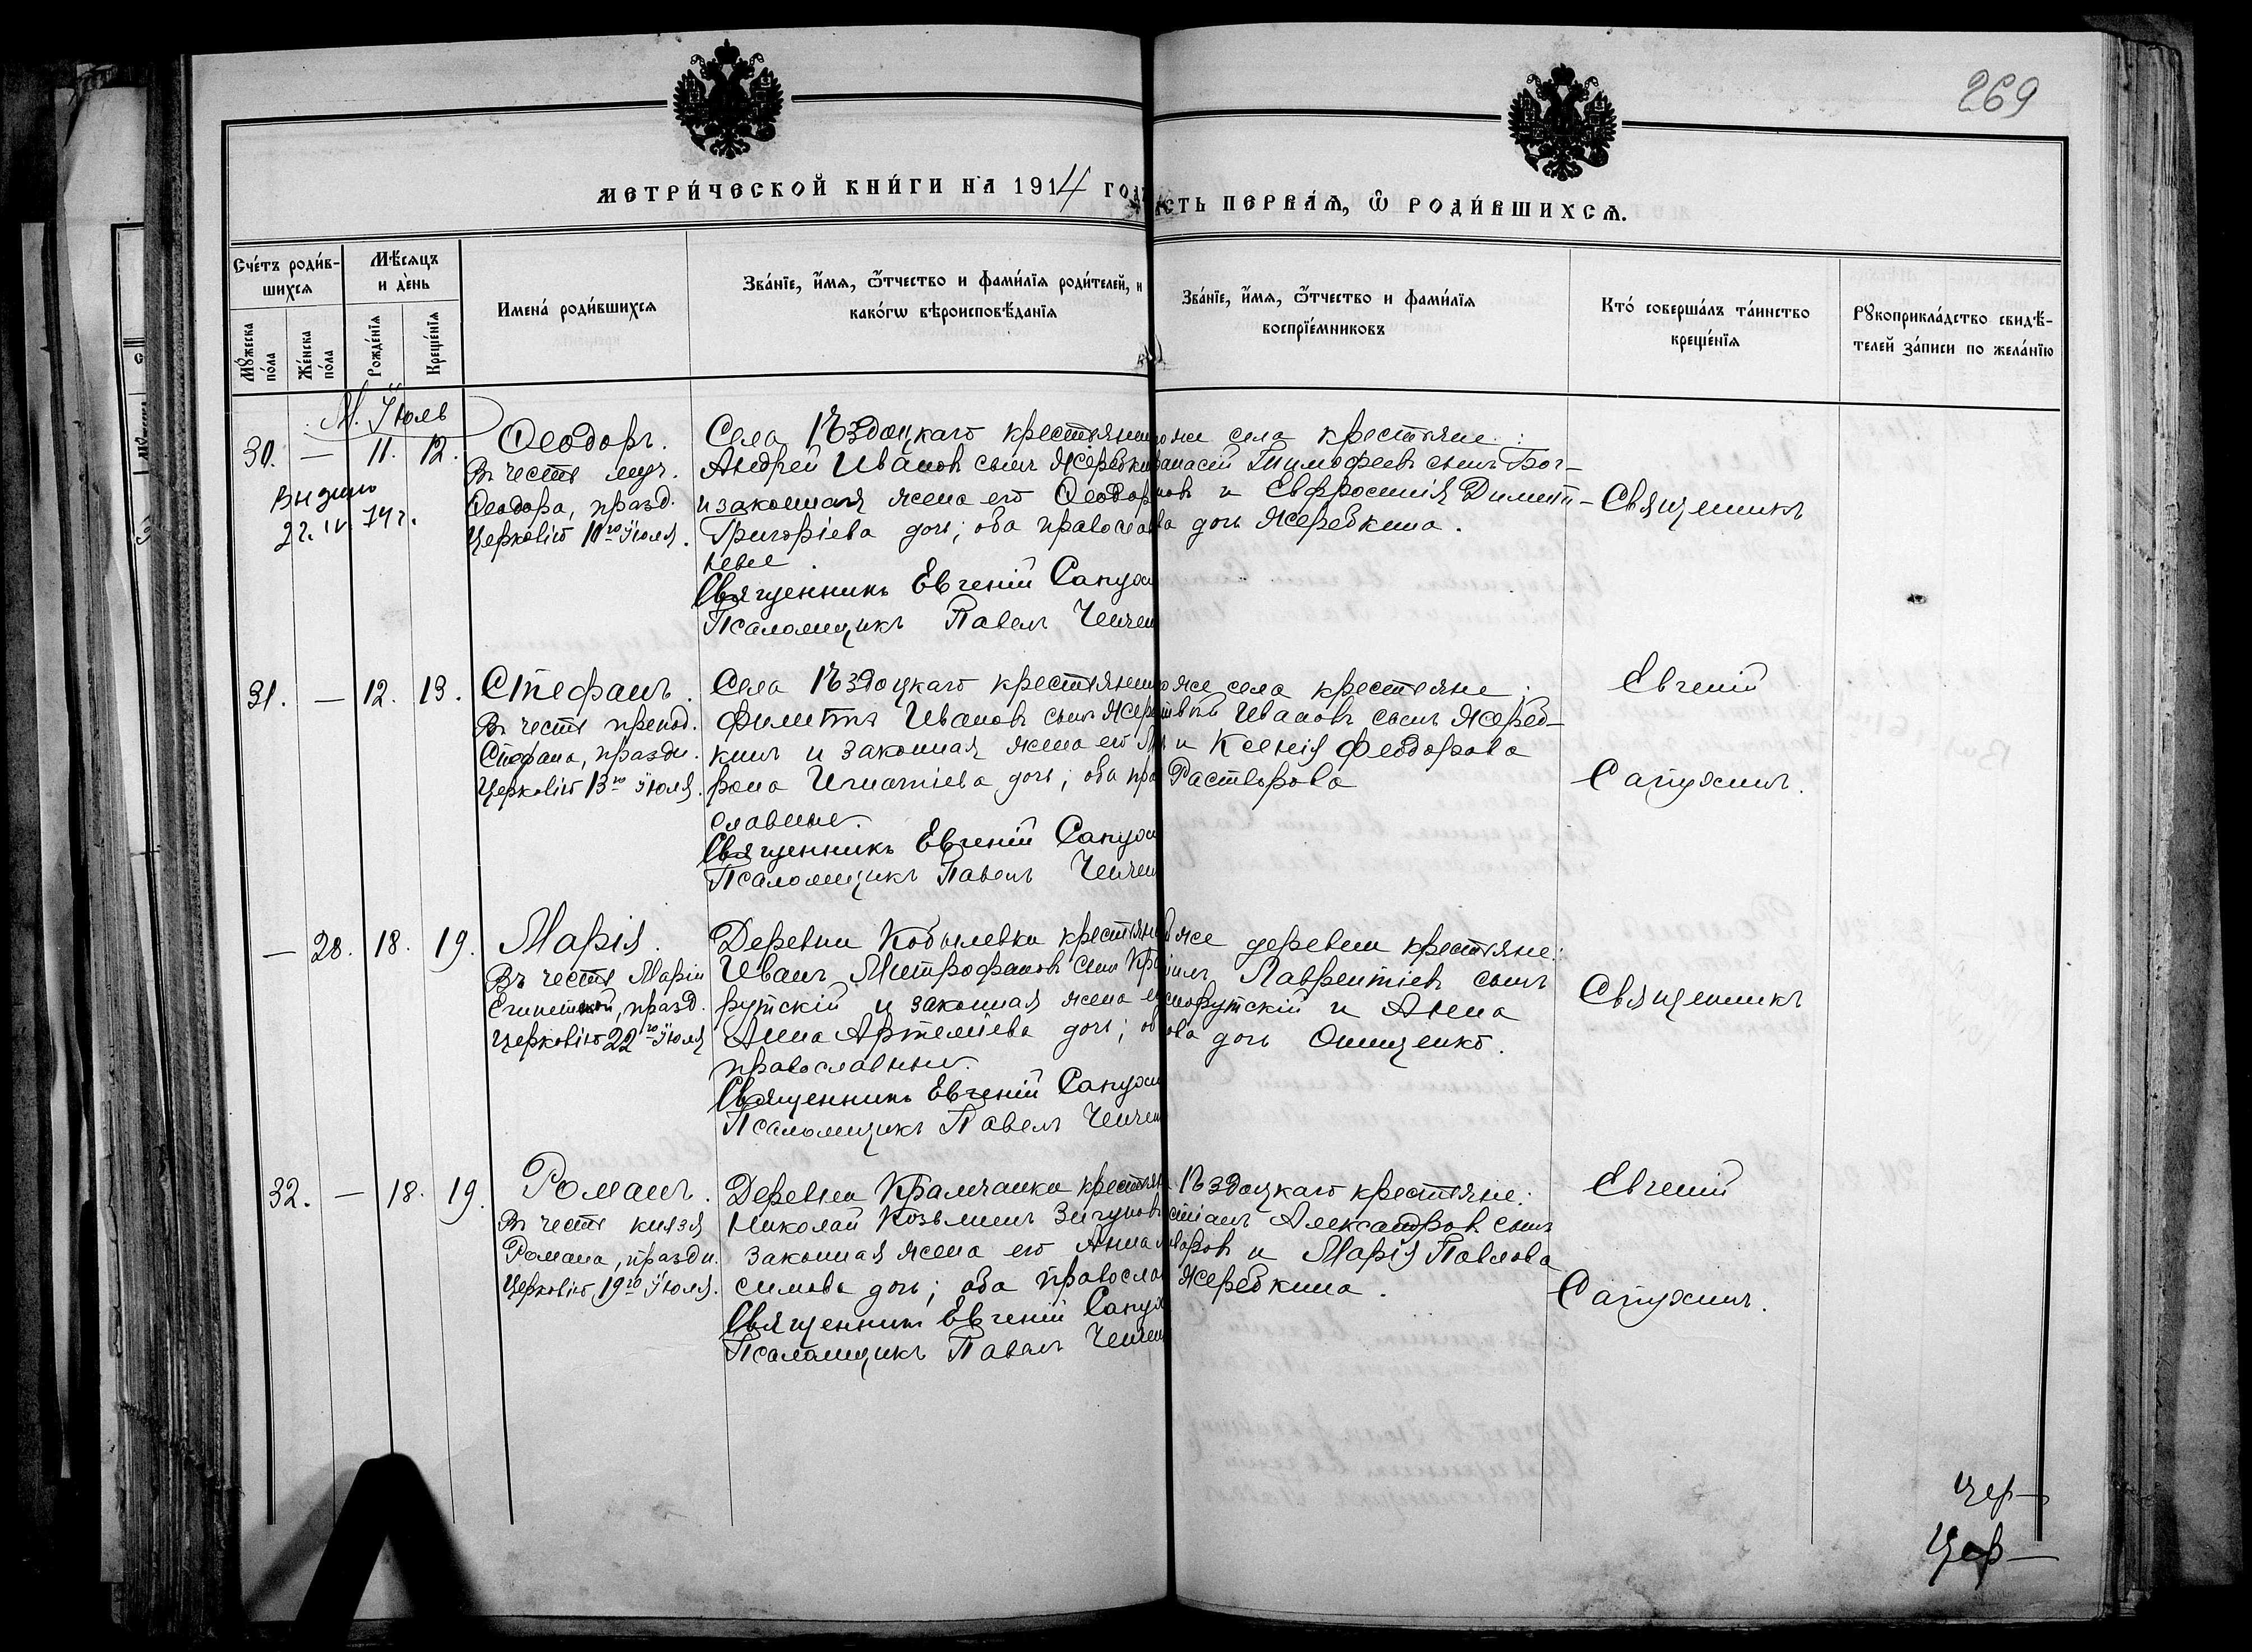 269
МЕТРИ́ЧЕСКОЙ КНИ́ГИ НА 1914 ГОД
СТЬ ПЕРВАѦ, Ѿ РОДИ́ВШИХСѦ.
Сче́тъ роди́в-
шихсѧ
Мꙋжеска
по́ла
Же́нска
по́ла
Мѣ́сѧцъ
и де́нь
Рожде́нїѧ
Креще́нїѧ
Имена̀ роди́вшихсѧ
Зва́нїе, и́мѧ, ѻ҆́тчество и фами́лїѧ роди́телей, и
како́гѡ вѣроисповѣ́данїѧ
Зва́нїе, и́мѧ, ѻ҆́тчество и фами́лїѧ
воспрїе́мниковъ
Кто̀ соверша́лъ та́инство
креще́нїѧ
Рꙋкоприкла́дство свидѣ́-
телей за́писи по жела́нїю
М. Іюль
30. — 11. 12.
Ѳеодоръ.
Въ честь муч.
Ѳеодора, празд.
Церковію 11го Іюля.
Села Ѣздоцкаго крестьянин
Андрей Ивановъ сынъ Жеребки
и законная жена его Ѳеодор
Григоріева дочь; оба правосла
ные.
Священникъ Евгеній Сапух
Псаломщикъ Павелъ
о же села крестьяне:
анасій Тимоѳеевъ сынъ Бог-
новъ и Евфросинія Димит-
ва дочь Жеребкина.
Священникъ
31. — 12. 13.
Стефанъ.
Въ честь препод.
Стефана, праздн.
Церковію 13го Іюля.
Села Ѣздоцкаго крестьянин
Филиппъ Ивановъ сынъ Жереб
кинъ и законная жена его
рона Игнатіева дочь; оба пра
славные.
Священникъ Евгеній Сапух
Псаломщикъ Павелъ
о же села крестьяне:
Ивановъ сынъ Жереб-
и Ксенія Ѳеодорова
Растворова
Евгеній
Сапухинъ.
— 28. 18. 19.
Марія.
Въ честь Маріи
празд.
Церковію 22го Іюля
Деревни Кобылевки крестьян
Иванъ Митрофановъ сынъ Кра
рутскій и законная жена е
Анна Артеміева дочь; об
православные.
Священникъ Евгеній Сапух
Псаломщикъ Павелъ
же деревни крестьяне:
илъ Лаврентіевъ сынъ
снорутскій и Анна
ова дочь Онищенко.
Священникъ
32. — 18. 19.
Романъ.
Въ честь князя
Романа, праздн.
Церковію 19го Іюля.
Деревни крестьян
Николай Козьминъ Зигунов
законная жена его Анна
симова дочь; оба правосла
Священникъ Евгеній Сапух
Псаломщикъ Павелъ
Ѣздоцкаго крестьяне:
стіанъ Александровъ сынъ
воровъ и Марія Павлова
Жеребкина.
Евгеній
Сапухинъ.